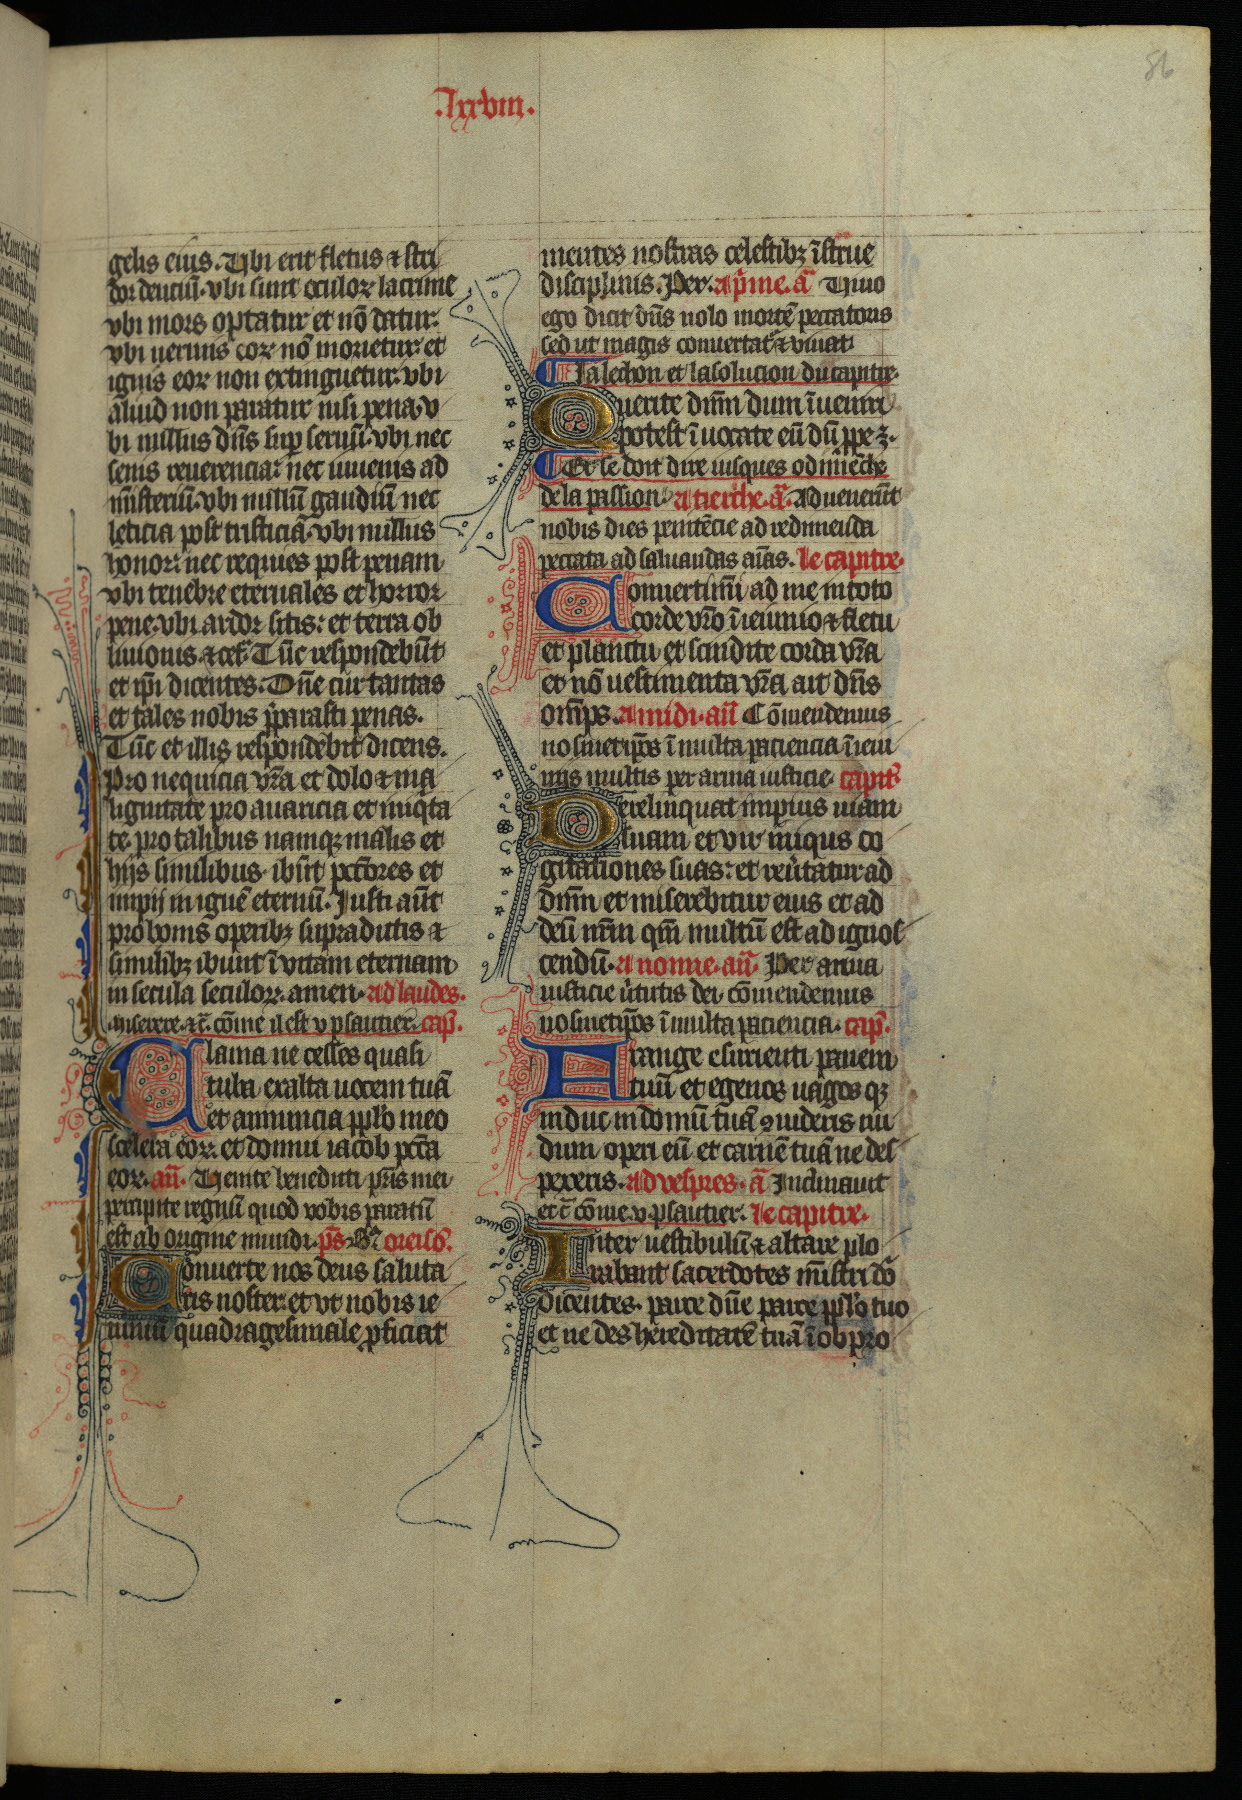 86
.lxxviii.
gelis eius. Vbi erit fletus ⁊ stri
dor dentiū. vbi sunt oculoꝝ lacrime
vbi mors optatur et nō datur.
vbi uermis eoꝝ nō morietur et
ignis eoꝝ non extinguetur. vbi
aliud non paratur nisi pena. v
bi nullus dn̄s suꝑ seruū. vbi nec
senis reuerencia: nec iuuenis ad
ministeriū. vbi nullū gaudiū nec
leticia post tristiciā. vbi nullus
honor: nec requies post penam
vbi tenebre eternales et horror
pene. vbi ardor sitis: et terra ob
liuionis. ⁊ cet̄. Tūc respondebūt
et ip̄i dicentes. Dn̄e cur tantas
et tales nobis p̄parasti penas.
Tūc et illis respondebit dicens.
Pro nequicia vr̄a et dolo ⁊ ma
lignitate pro auaricia et iniqͥta
te. pro talibus namqꝫ malis et
hijs similibus. ibūt pctōres et
impij in ignē eternū. Justi aūt
pro bonis operibꝫ supradictis ⁊
similibꝫ ibunt ī vitam eternam
in secula seculoꝝ. amen. ad laudes.
miserere. ⁊c̄. cōme il est v psautier. cap̄.
Clama ne cesses quasi
tuba exalta uocem tuā
et annuncia pplo meo
scelera eoꝝ. et domui iacob pctā
eoꝝ. an̄. Venite benedicti pr̄is mei
percipite regnū quod vobis paratū
est ab origine mundi. ps̄. Bn̄ oreiso.
Conuerte nos deus saluta
ris noster. et vt nobis ie
iuniū quadragesimale ꝓficiat
mentes nostras celestibꝫ īstrue
disciplinis. Per. a p̄me. ā. Viuo
ego dicit dn̄s nolo mortē peccatoris
sed ut magis conuertat᷑ ⁊ viuat
¶ la lechon et lasolucion du capitre.
Querite dn̄m dum īueniri
potest ī uocate eū dū ꝓpe ē.
¶ Et se doit dire iusques od
de la passion. a tierche. ā. Aduenerūt
nobis dies penitēcie ad redimenda
peccata ad saluandas aīas. le capitre.
Conuertimī ad me in toto
corde vr̄o ī ieiunio ⁊ fletu
et planctu et scindite corda vr̄a
et nō uestimenta vr̄a ait dn̄s
omīps. a midi. an̄. Cōmendemus
nosmetip̄os ī multa paciencia ī ieiu
niis multis per arma iusticie. capit̄.
Derelinquat impius uiam
suam et vir iniqus co
gitationes suas: et reūtatur ad
dn̄m et miserebitur eius et ad
deū nr̄m qm̄ multū est ad ignos
cendū. a nonne. an̄. Per arma
iusticie ūtutis dei. cōmendemus
nosmetip̄os ī multa paciencia. cap̄.
Frange esurienti panem
tuū et egenos uagos qꝫ
induc in domū tuā 9 uideris nu
dum operi eū et carnē tuā ne des
pexeris. ad vespres. ā. Inclinauit
et c̄ cōme. v psautier. le capitre.
Inter uestibulū ⁊ altare plo
rabant sacerdotes mīstri dn̄i
dicentes. parce dn̄e parce pplo tuo
et ne des hereditatē tuā ī obpro